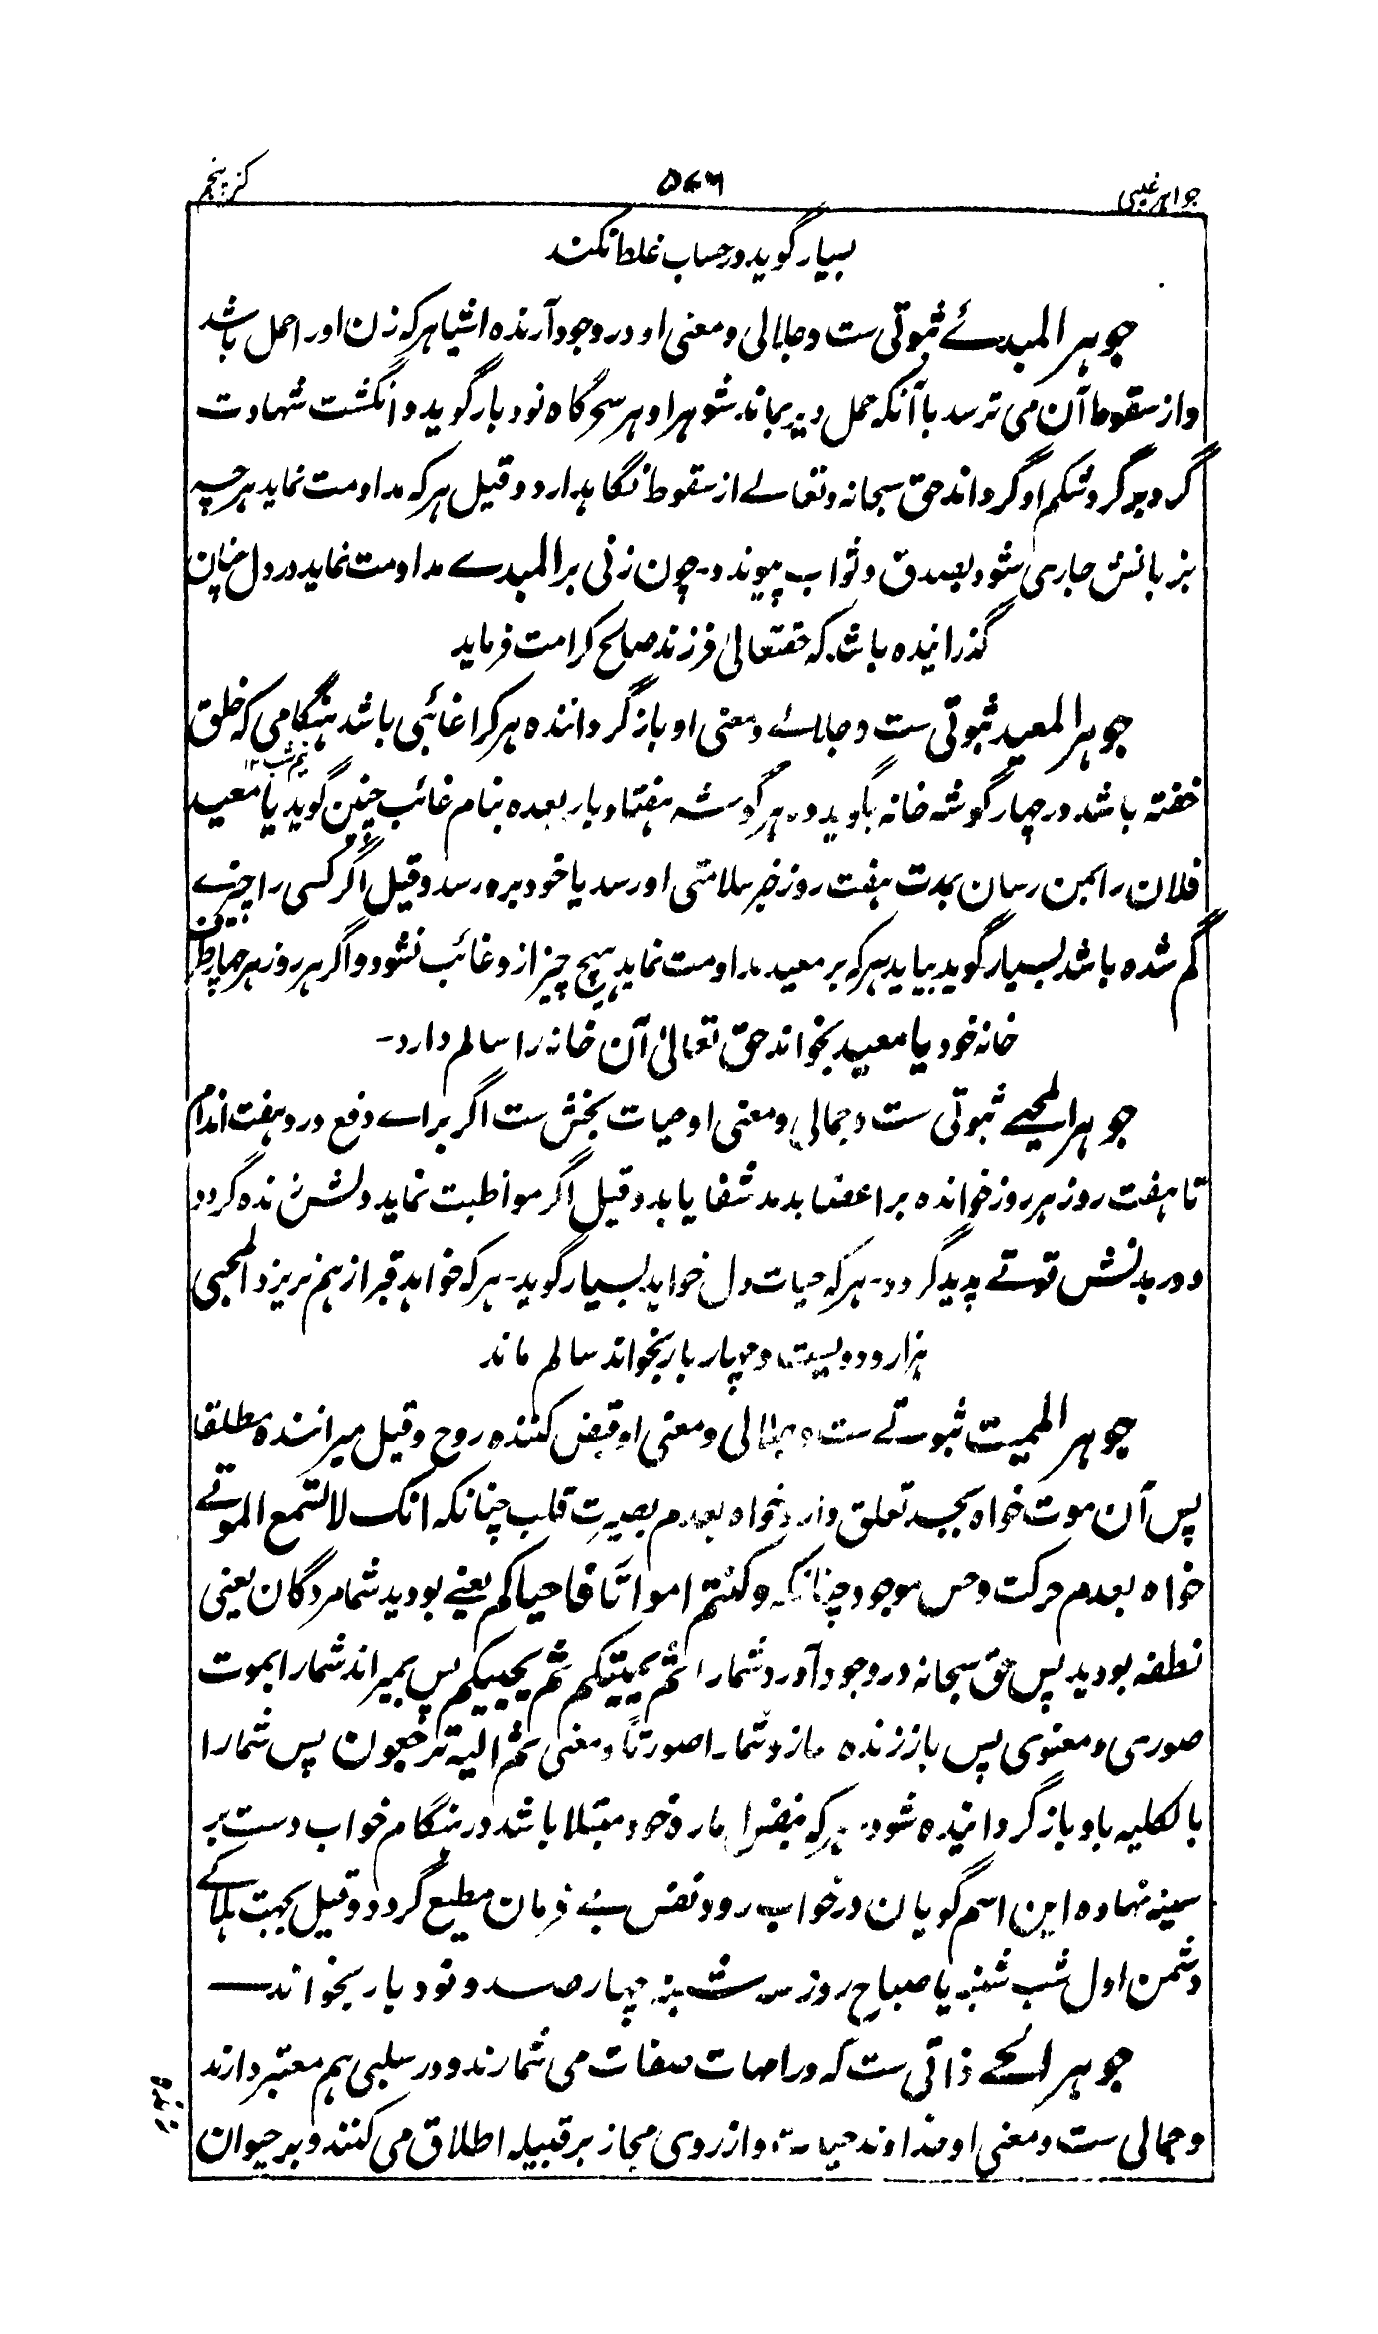 جواهر غیبی
۵۷۶
کنز پنجم
بسیار گوید در حساب غلط نکند
جوهر المبدئ ثبوتی ست و جلالی و معنی او در وجود آرنده اشیا هر که زن او را حمل باشد
و از سقوط آن می ترسد یا آنکه حمل دیر بماند شوهر او هر سحرگاه نود بار گوید و انگشت شهادت
گرد بر گرد شکم او گرداند حق سبحانه و تعالے از سقوط نگاهدارد و قیل هر که مداومت نماید هر چه
بزبانش جاری شود بصدق و ثواب پیوندد۔ چون زنی بر المبدے مداومت نماید در دل چنان
گذرانیده باشد که حقتعالیٰ فرزند صالح کرامت فرماید
جوهر المعید ثبوتی ست و جمالے و معنی او باز گرداننده هر کرا غائبی باشد هنگامی که خلق
نیم شب ۱۲
خفته باشد در چهار گوشه خانه بگوید در هر گوشه هفتاد بار بعده بنام غائب چنین گوید یا معید
فلان را بمن رسان بمدت هفت روز خبر سلامتی او رسد یا خود برسد و قیل اگر کسی را چیزے
گم شده باشد بسیار گوید بیابد هر که بر معید مداومت نماید هیچ چیز از و غائب نشود و اگر هر روز هر چهار رکن
خانه خود یا معید بخواند حق تعالیٰ آن خانه را سالم دارد۔
جوهر المحیے ثبوتی ست و جمالی و معنی او حیات بخش ست اگر براے دفع درد هفت اندام
تا هفت روز هر روز خوانده بر اعضا بدمد شفا یابد و قیل اگر مواظبت نماید دلش زنده گردد
و در بدنش قوتے پدید گردد۔ هر که حیات دل خواهد بسیار گوید۔ هر که خواهد قبر از هم نریزد المحیی
هزار و دویست و چهار بار بخواند سالم ماند
جوهر الممیت ثبوتے ست و جلالی و معنی او قبض کننده روح و قیل میراننده مطلقا
پس آن موت خواه بجسد تعلق دارد خواه بعدم بصیرتِ قلب چنانکه انک لا تسمع الموتے
خواه بعدم حرکت و حس موجود چنانکه و کنتم امواتًا فاحیاکم یعنے بودید شما مردگان یعنی
نطفه بودید پس حق سبحانه در وجود آورد شمارا ثم یمیتکم ثم یحییکم پس بمیراند شمارا بموت
صوری و معنوی پس باز زنده سازد شمارا صورتًا و معنی ثم الیه ترجعون پس شمارا
بالکلیه باو باز گردانیده شود۔ هر که بنفس اماره خود مبتلا باشد در هنگام خواب دست بر
سینه نهاده این اسم گویان در خواب رود نفس بے فرمان مطیع گردد و قیل بجهت هلاکے
دشمن اول شب شنبه یا صباح روز سه شنبه چهار صد و نود بار بخواند
جوهر الحے ذاتی ست که در امهات صفات می شمارند و در سلبی هم معتبر دارند
و جمالی ست و معنی او خداوند حیات و از روی مجاز بر قبیله اطلاق می کنند و بر حیوان